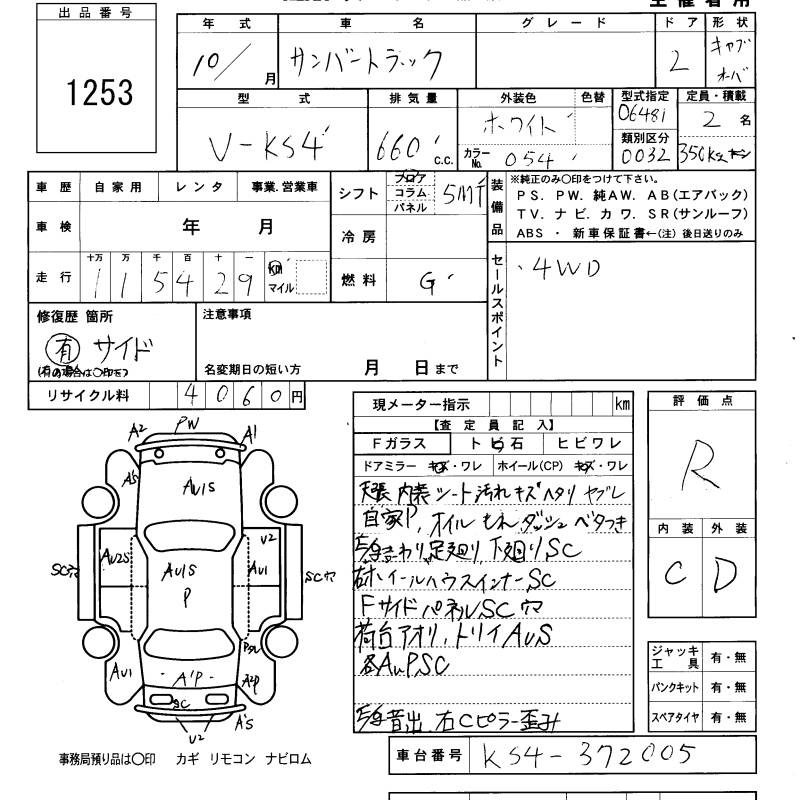 出品番号
1253
年式 車名 グレード ドア 形状
10/ 月 サンバートラック 2 キャブオーバ
型式 排気量 外装色 色替 型式指定 定員・積載
V-KS4 660 c.c. ホワイト 06481 2名
カラーNo. 054 類別区分 0032 350kg
車歴 自家用 レンタ 事業.営業車 シフト フロア コラム パネル 5MT
装備品 ※純正のみ〇印をつけて下さい。
PS. PW. 純AW. AB(エアバック)
TV. ナビ. カワ. SR(サンルーフ)
ABS ・ 新車保証書←(注) 後日送りのみ
車検 年 月 冷房
走行 十万 万 千 百 十 一
115429 km マイル 燃料 G
セールスポイント ・4WD
修復歴 箇所 注意事項
有 サイド
(有の場合は〇印を)
名変期日の短い方 月 日まで
リサイクル料 4060円
現メーター指示 km
【査定員記入】
Fガラス トビ石 ヒビワレ
ドアミラー キズ・ワレ ホイール(CP) キズ・ワレ
天張 内装 シート汚れ キズ ヘタリ ヤブレ
自家P, オイルもれ ダッシュ ベタつき
まわり, 足廻り, 下廻りSC
右ホイールハウスインナーSC
FサイドパネルSC穴
荷台アオリ, トリイAUS
各AUPSC
音出 右Cピラー歪み
評価点
R
内装 外装
C D
ジャッキ工具 有・無
パンクキット 有・無
スペアタイヤ 有・無
PW
A2 A1
A'S AU1S
V2
AU2S AU1S AU1
SC穴 P SC穴
AU1 A'P A2P
SC A'S
V2
事務局預り品は〇印 カギ リモコン ナビロム
車台番号 KS4-372005